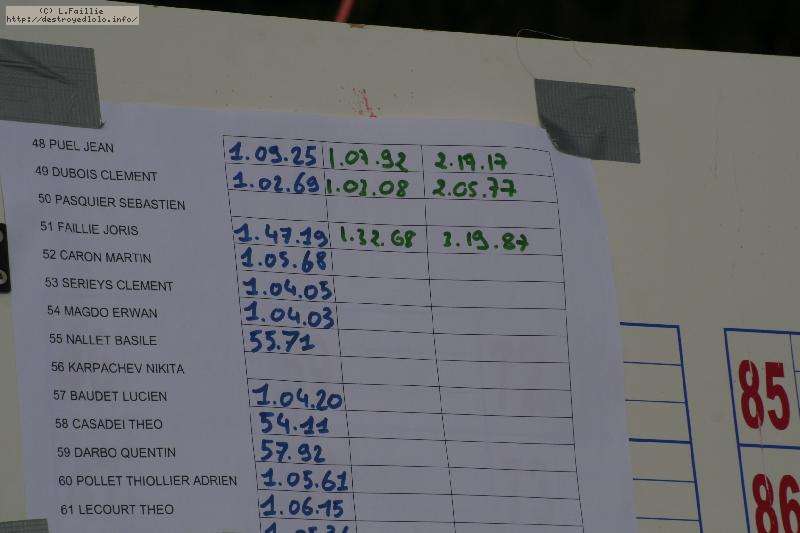 (C) L.Faillie
http://destroyedlolo.info/
48 PUEL JEAN 1.09.25 1.07.92 2.17.17
49 DUBOIS CLEMENT 1.02.69 1.03.08 2.05.77
50 PASQUIER SEBASTIEN
51 FAILLIE JORIS 1.47.19 1.32.68 3.19.87
52 CARON MARTIN 1.05.68
53 SERIEYS CLEMENT 1.04.05
54 MAGDO ERWAN 1.04.03
55 NALLET BASILE 55.71
56 KARPACHEV NIKITA
57 BAUDET LUCIEN 1.04.20
58 CASADEI THEO 54.11
59 DARBO QUENTIN 57.92
60 POLLET THIOLLIER ADRIEN 1.05.61
61 LECOURT THEO 1.06.15
85
86